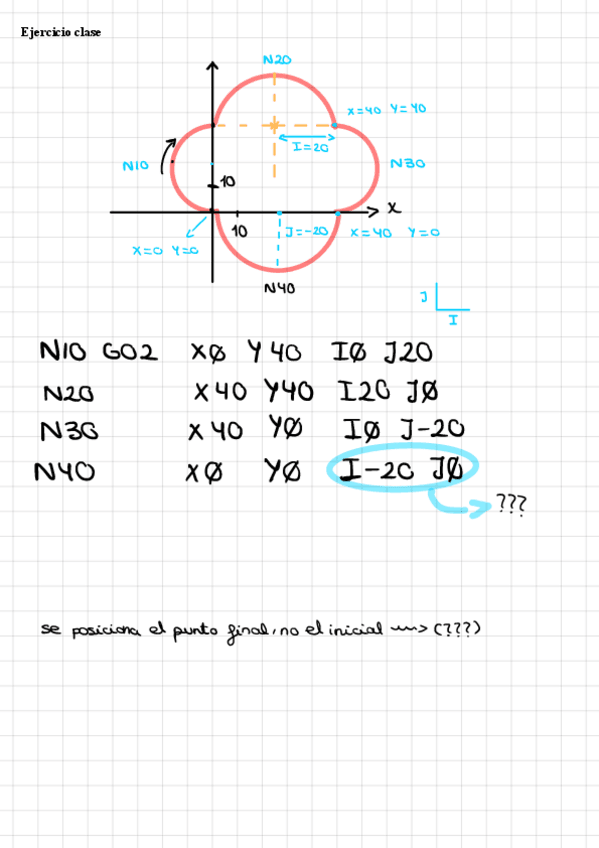 Ejercicio clase
N20
X=40 Y=40
I=20
N10
N30
10
X
10
J=-20
X=40 Y=0
X=0 Y=0
N40
J
I
N10 G02 XØ Y40 IØ J20
N20 X40 Y40 I20 JØ
N30 X40 YØ IØ J-20
N40 XØ YØ I-20 JØ
???
se posiciona el punto final, no el inicial ~~> (???)